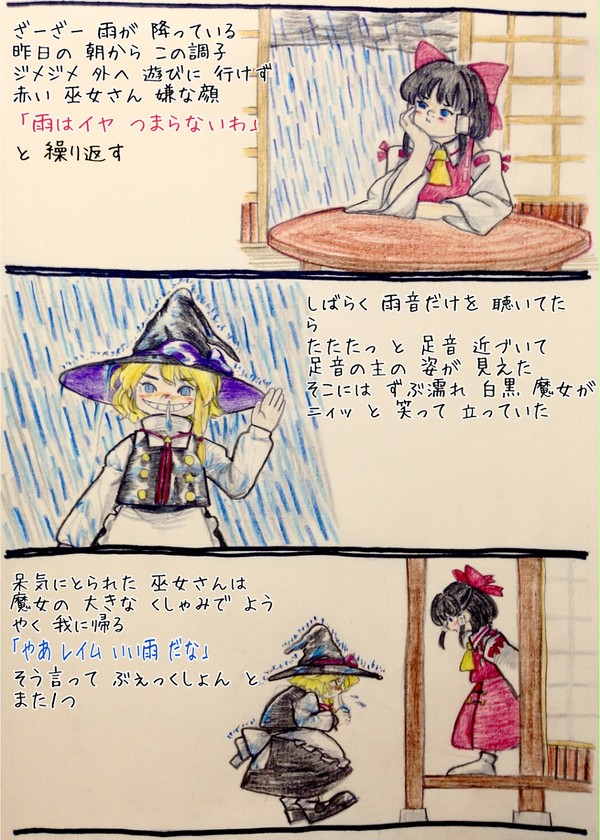 ざーざー 雨が 降っている
昨日の 朝から この調子
ジメジメ 外へ 遊びに 行けず
赤い 巫女さん 嫌な顔
「雨はイヤ つまらないわ」
と 繰り返す
しばらく 雨音だけを 聴いてた
ら
たたたっ と 足音 近づいて
足音の主の 姿が 見えた
そこには ずぶ濡れ 白黒 魔女が
ニィッ と 笑って 立っていた
呆気にとられた 巫女さんは
魔女の 大きな くしゃみで よう
やく 我に帰る
「やあ レイム いい雨 だな」
そう言って ぶぇっくしょん と
また1つ